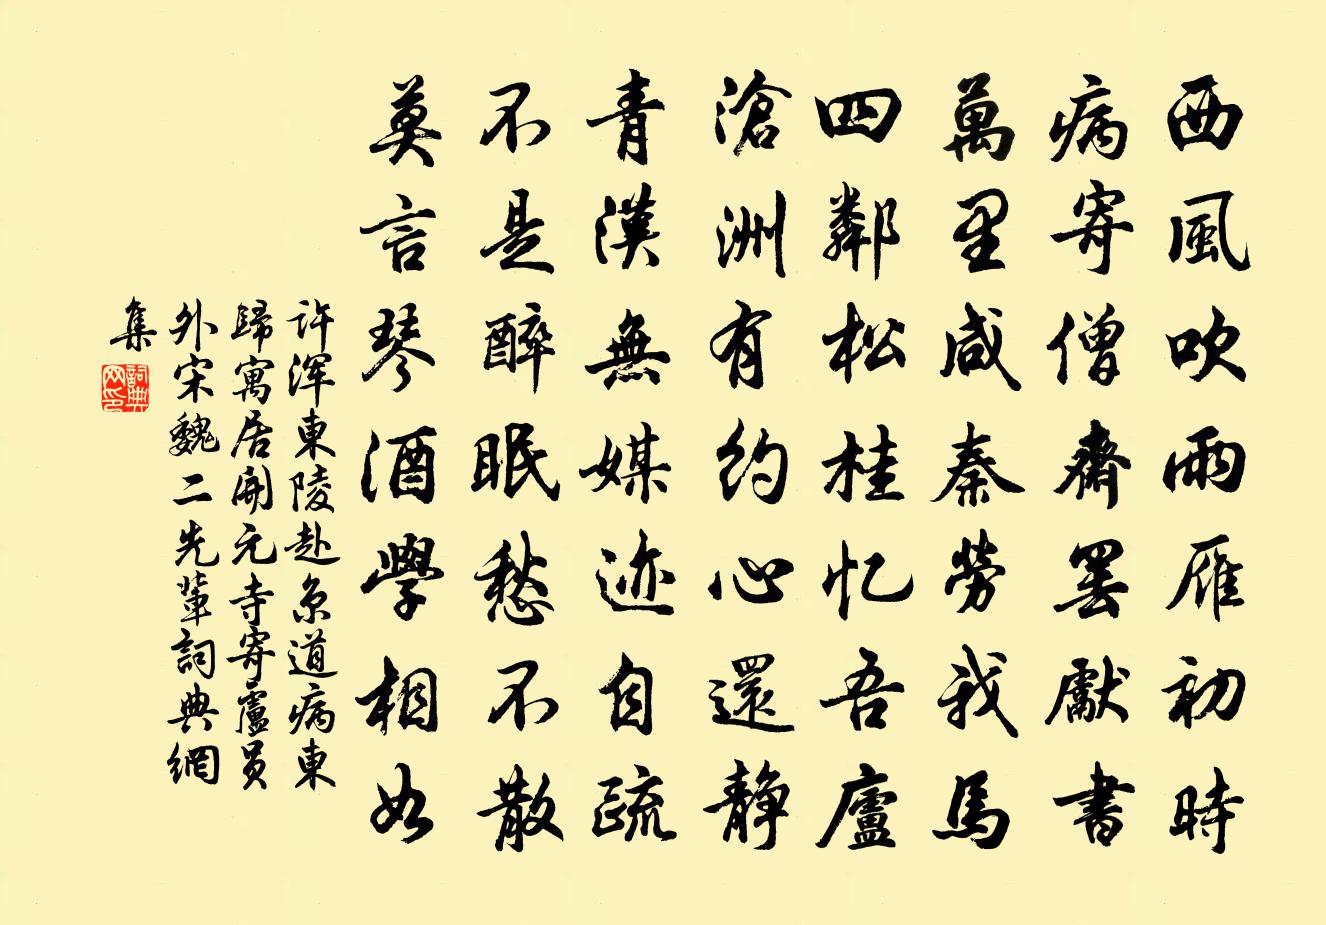 西風吹雨雁初時
病寄僧齋罷獻書
萬里咸秦勞我馬
四鄰松桂忆吾廬
滄洲有約心還静
青漢無媒迹自疏
不是醉眠愁不散
莫言琴酒學相如
許浑東陵赴京道病東
歸寓居開元寺寄盧員
外宋魏二先輩詞典網
集
詞典
网印